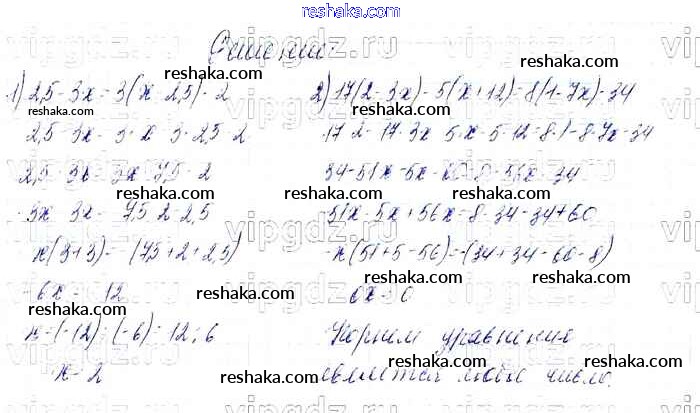 reshaka.com
Решение:
1) 2,5 - 3x = 3(x - 2,5) - 2
2) 17(2 - 3x) - 5(x + 12) = 8(1 - 7x) - 34
reshaka.com reshaka.com
2,5 - 3x = 3 · x - 3 · 2,5 - 2
17 · 2 - 17 · 3x - 5 · x - 5 · 12 = 8 · 1 - 8 · 7x - 34
reshaka.com reshaka.com
2,5 - 3x = 3x - 7,5 - 2
34 - 51x - 5x - 60 = 8 - 56x - 34
reshaka.com reshaka.com
-3x - 3x = -7,5 - 2 - 2,5
-51x - 5x + 56x = 8 - 34 - 34 + 60
reshaka.com reshaka.com
-x(3+3) = -(7,5 + 2 + 2,5)
-x(51 + 5 - 56) = -(34 + 34 - 60 - 8)
reshaka.com reshaka.com
-6x = -12
0x = 0
reshaka.com reshaka.com
x = (-12) : (-6) = 12 : 6
Корнем уравнения
reshaka.com reshaka.com
x = 2
является любое число.
reshaka.com reshaka.com